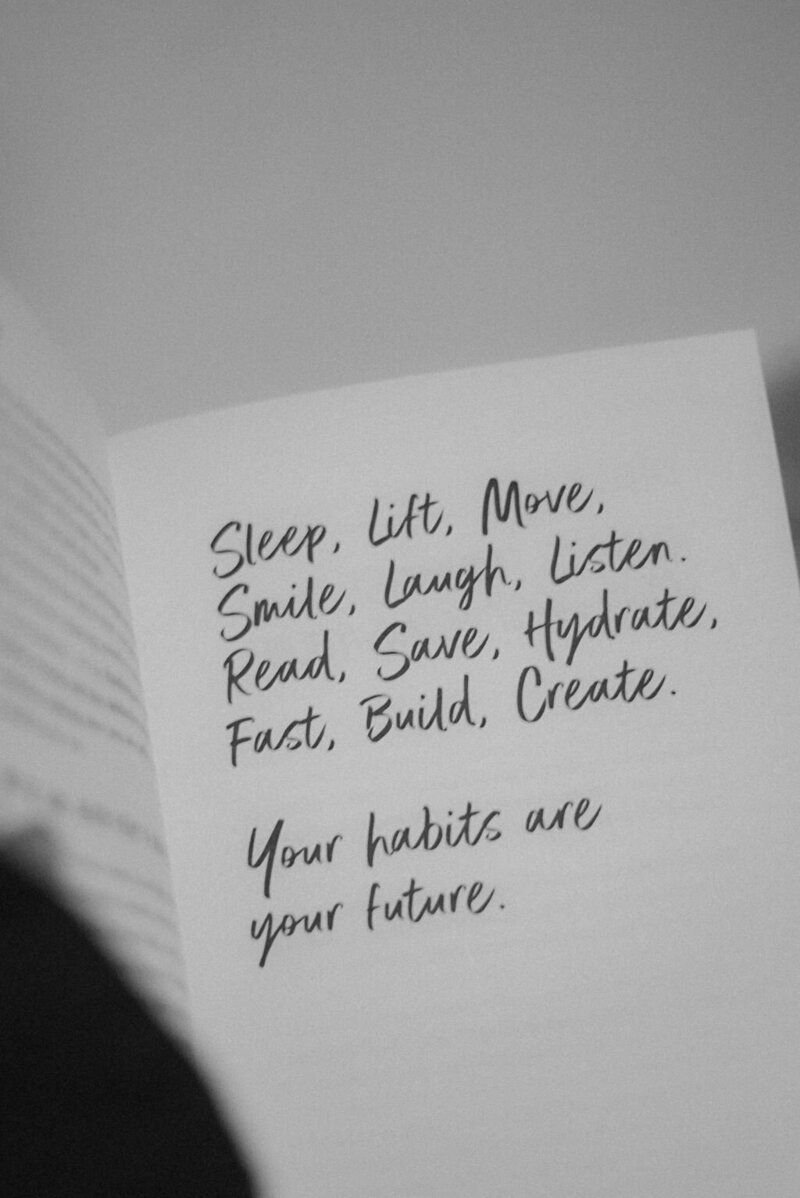 Sleep, Lift, Move,
Smile, Laugh, Listen.
Read, Save, Hydrate,
Fast, Build, Create.
Your habits are
your future.